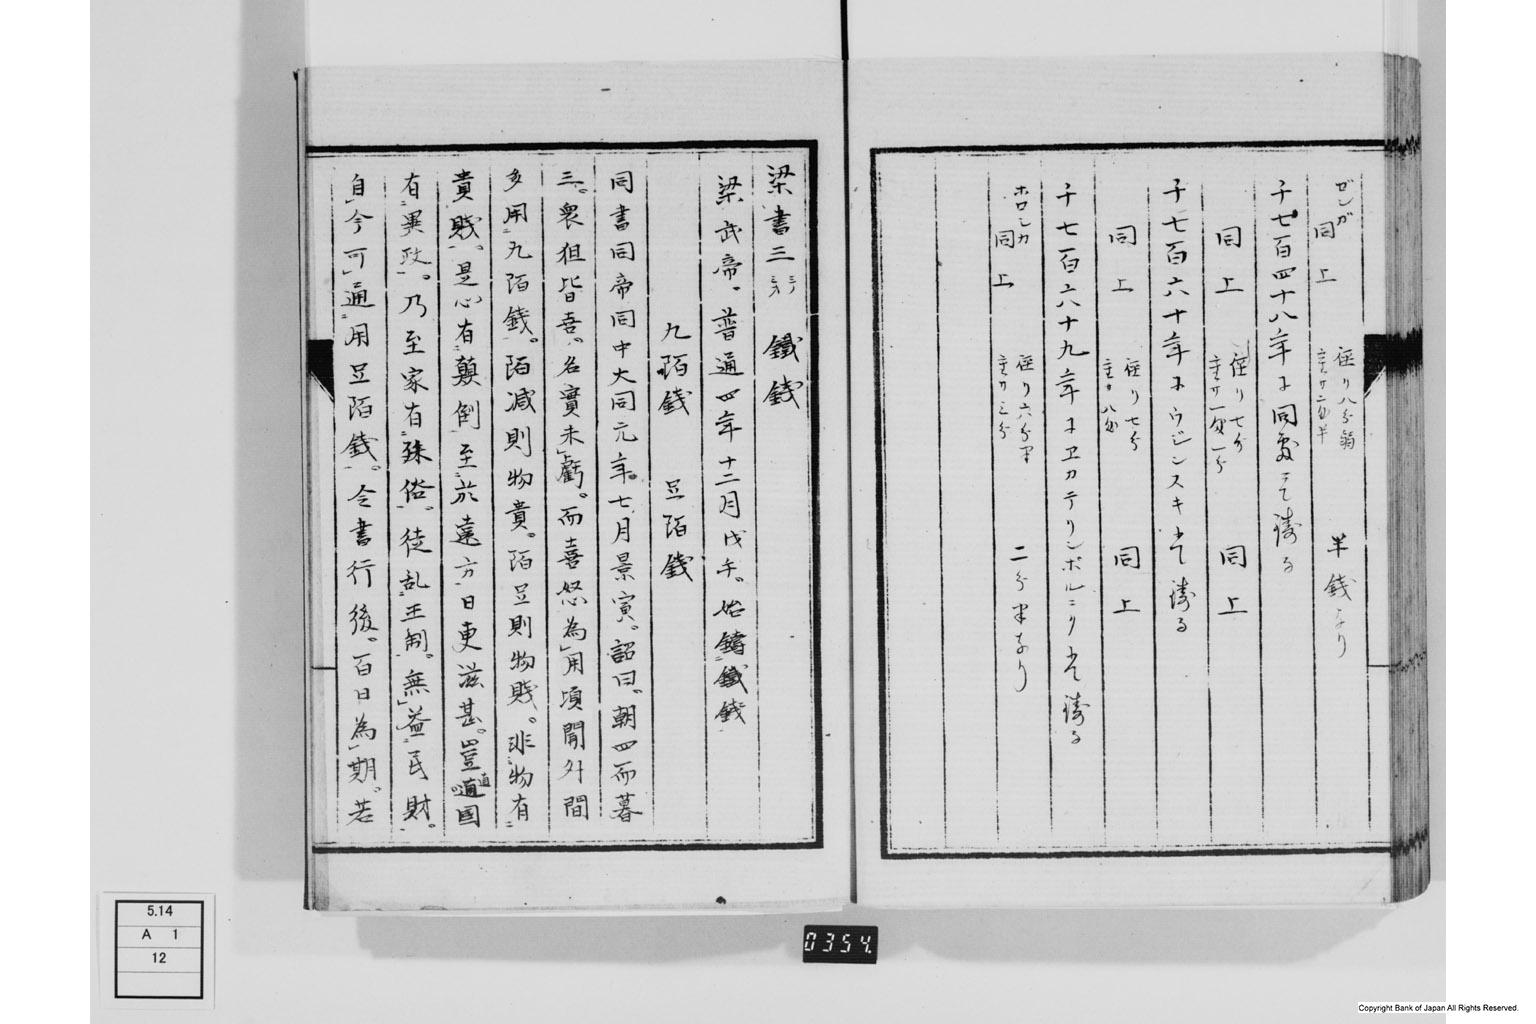 ゼンガ
同上
径リ八分弱
重サ二匁半
半銭なり
千七百四十八年に同處にて鋳る
同上
径リ七分
重サ一匁一分
同上
千七百六十年ニウジンスキにて鋳る
同上
径リ七分
重サ八匁
同上
千七百六十九年ニヱカテリンボルニり にて鋳る
同上
径リ六分半
重サ三分
二分半なり
梁書三 鐵錢
梁武帝。普通四年十二月戊午。始鑄鐵錢
九陌錢 足陌錢
同書同帝同中大同元年。七月景寅。詔曰。朝四而暮
三。衆狙皆喜。名實未虧。而喜怒為用頃聞外間
多用九陌錢。陌减則物貴。陌足則物賤。非物有
貴賤。是心有顛倒至於遠方日更滋甚。豈直國
有異政。乃至家有殊俗。徒乱王制。無益民財。
自今可通用足陌錢。令書行後。百日為期。若
0354
5.14
A 1
12
Copyright Bank of Japan All Rights Reserved.